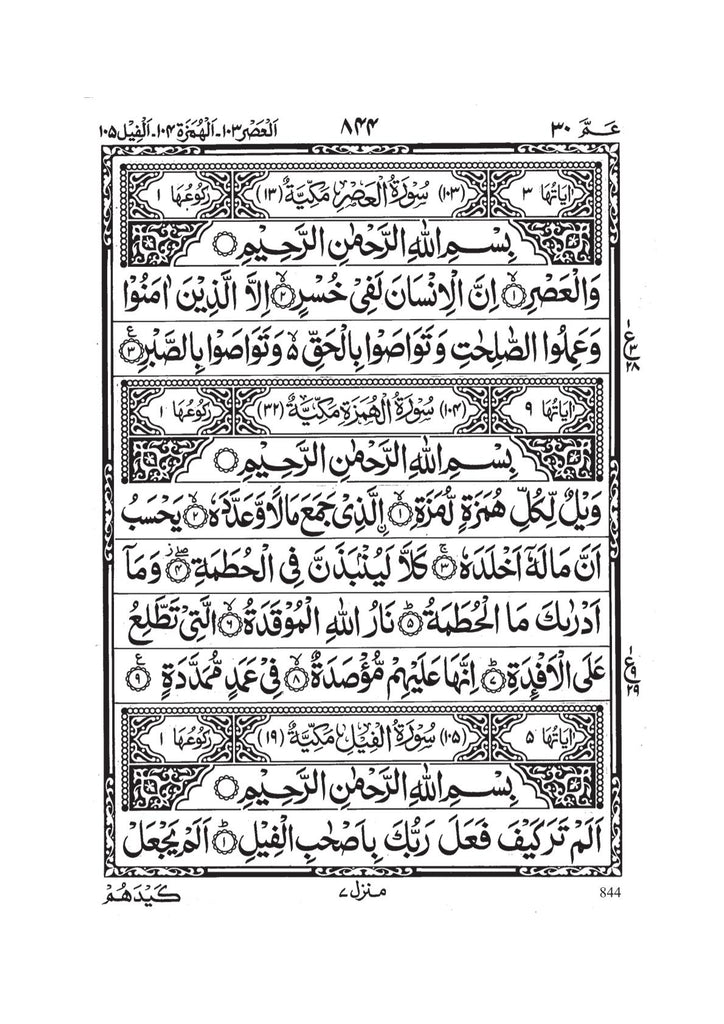 عَـمَّ ۳۰ ۸۴۴ اَلْعَصْر ۱۰۳۔اَلْهُمَزَة ۱۰۴۔اَلْفِيْل ۱۰۵
اٰيَاتُهَا ۳ (۱۰۳) سُوْرَةُ الْعَصْرِ مَكِّيَّةٌ (۱۳) رُكُوْعُهَا ۱
بِسْمِ اللهِ الرَّحْمٰنِ الرَّحِيْمِ
وَالْعَصْرِ ۙ﴿۱﴾ اِنَّ الْاِنْسَانَ لَفِيْ خُسْرٍ ۙ﴿۲﴾ اِلَّا الَّذِيْنَ اٰمَنُوْا
وَعَمِلُوا الصّٰلِحٰتِ وَتَوَاصَوْا بِالْحَقِّ ۙ۬ وَتَوَاصَوْا بِالصَّبْرِ ﴿۳﴾ ع
۱ ع ۳ ۲۸
اٰيَاتُهَا ۹ (۱۰۴) سُوْرَةُ الْهُمَزَةِ مَكِّيَّةٌ (۳۲) رُكُوْعُهَا ۱
بِسْمِ اللهِ الرَّحْمٰنِ الرَّحِيْمِ
وَيْلٌ لِّكُلِّ هُمَزَةٍ لُّمَزَةِ ۙ﴿۱﴾ اۨلَّذِيْ جَمَعَ مَالًا وَّعَدَّدَهٗ ۙ﴿۲﴾ يَحْسَبُ
اَنَّ مَالَهٗٓ اَخْلَدَهٗ ۚ﴿۳﴾ كَلَّا لَيُنْۢبَذَنَّ فِي الْحُطَمَةِ ۖ﴿۴﴾ وَمَآ
اَدْرٰىكَ مَا الْحُطَمَةُ ؕ﴿۵﴾ نَارُ اللهِ الْمُوْقَدَةُ ۙ﴿۶﴾ الَّتِيْ تَطَّلِعُ
عَلَى الْاَفْـِٕدَةِ ؕ﴿۷﴾ اِنَّهَا عَلَيْهِمْ مُّؤْصَدَةٌ ۙ﴿۸﴾ فِيْ عَمَدٍ مُّمَدَّدَةٍ ﴿۹﴾ ع
۱ ع ۹ ۲۹
اٰيَاتُهَا ۵ (۱۰۵) سُوْرَةُ الْفِيْلِ مَكِّيَّةٌ (۱۹) رُكُوْعُهَا ۱
بِسْمِ اللهِ الرَّحْمٰنِ الرَّحِيْمِ
اَلَمْ تَرَ كَيْفَ فَعَلَ رَبُّكَ بِاَصْحٰبِ الْفِيْلِ ؕ﴿۱﴾ اَلَمْ يَجْعَلْ
844 منزل ۷ كَيْدَهُمْ